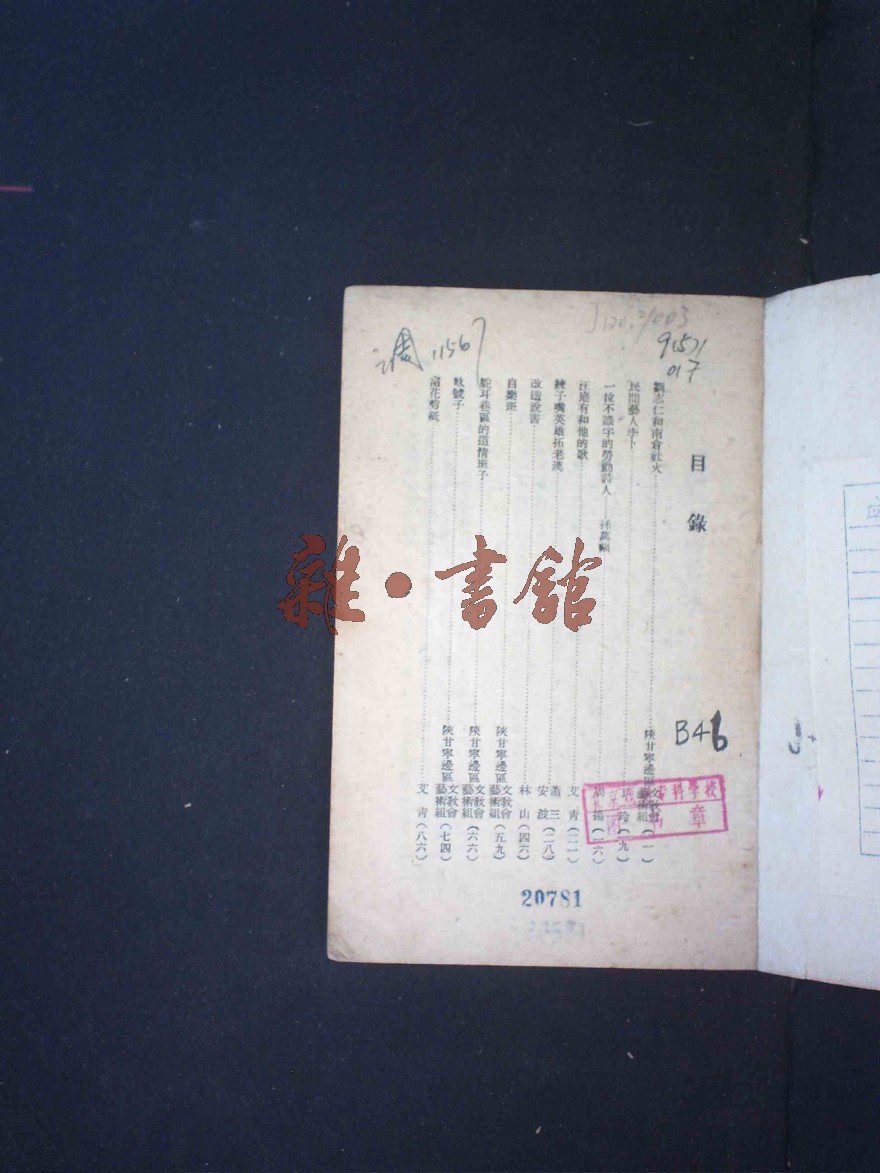 目錄
劉志仁和南倉社火……陝甘寧邊區文教會藝術組(一)
民間藝人李卜……丁玲(九)
一位不識字的勞動詩人——孫萬福……周揚(一六)
汪庭有和他的歌……艾青(二一)
練子嘴英雄拓老漢……蕭三 安波(二八)
改造說書……林山(四六)
自樂班……陝甘寧邊區文教會藝術組(五九)
駝耳巷區的道情班子……陝甘寧邊區文教會藝術組(六六)
敇號子……陝甘寧邊區文教會藝術組(七四)
窗花剪紙……艾青(八六)
調 1156
J120.2/003
91571
017
B46
科學校
章
20781
雜·書館